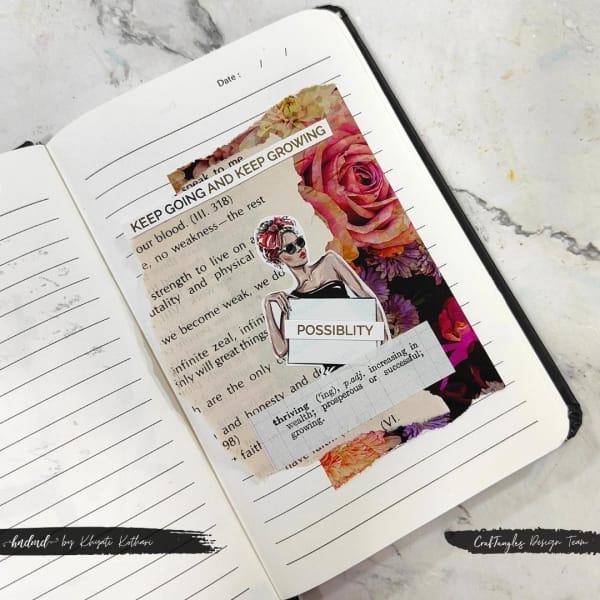 Date : / /
speak to me
KEEP GOING AND KEEP GROWING
our blood. (III. 318)
e, no weakness—the rest
strength to live on a
utality and physical
we become weak, we do
infinite zeal, infini
only will great things
h are the only
and honesty and de
98)
t faith
have faith
(VI.
POSSIBLITY
thriving ('ing), p.adj. increasing in
wealth; prosperous or successful;
growing.
hndmd by Khyati Kothari
CrafTangles Design Team